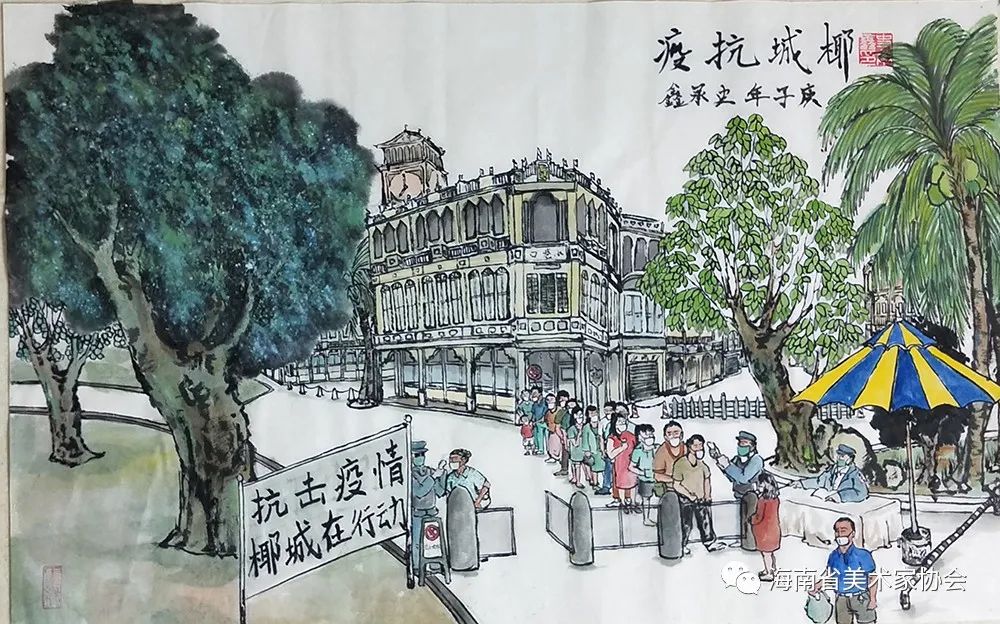 椰城抗疫
庚子年 鑫
抗击疫情
椰城在行动
海南省美术家协会